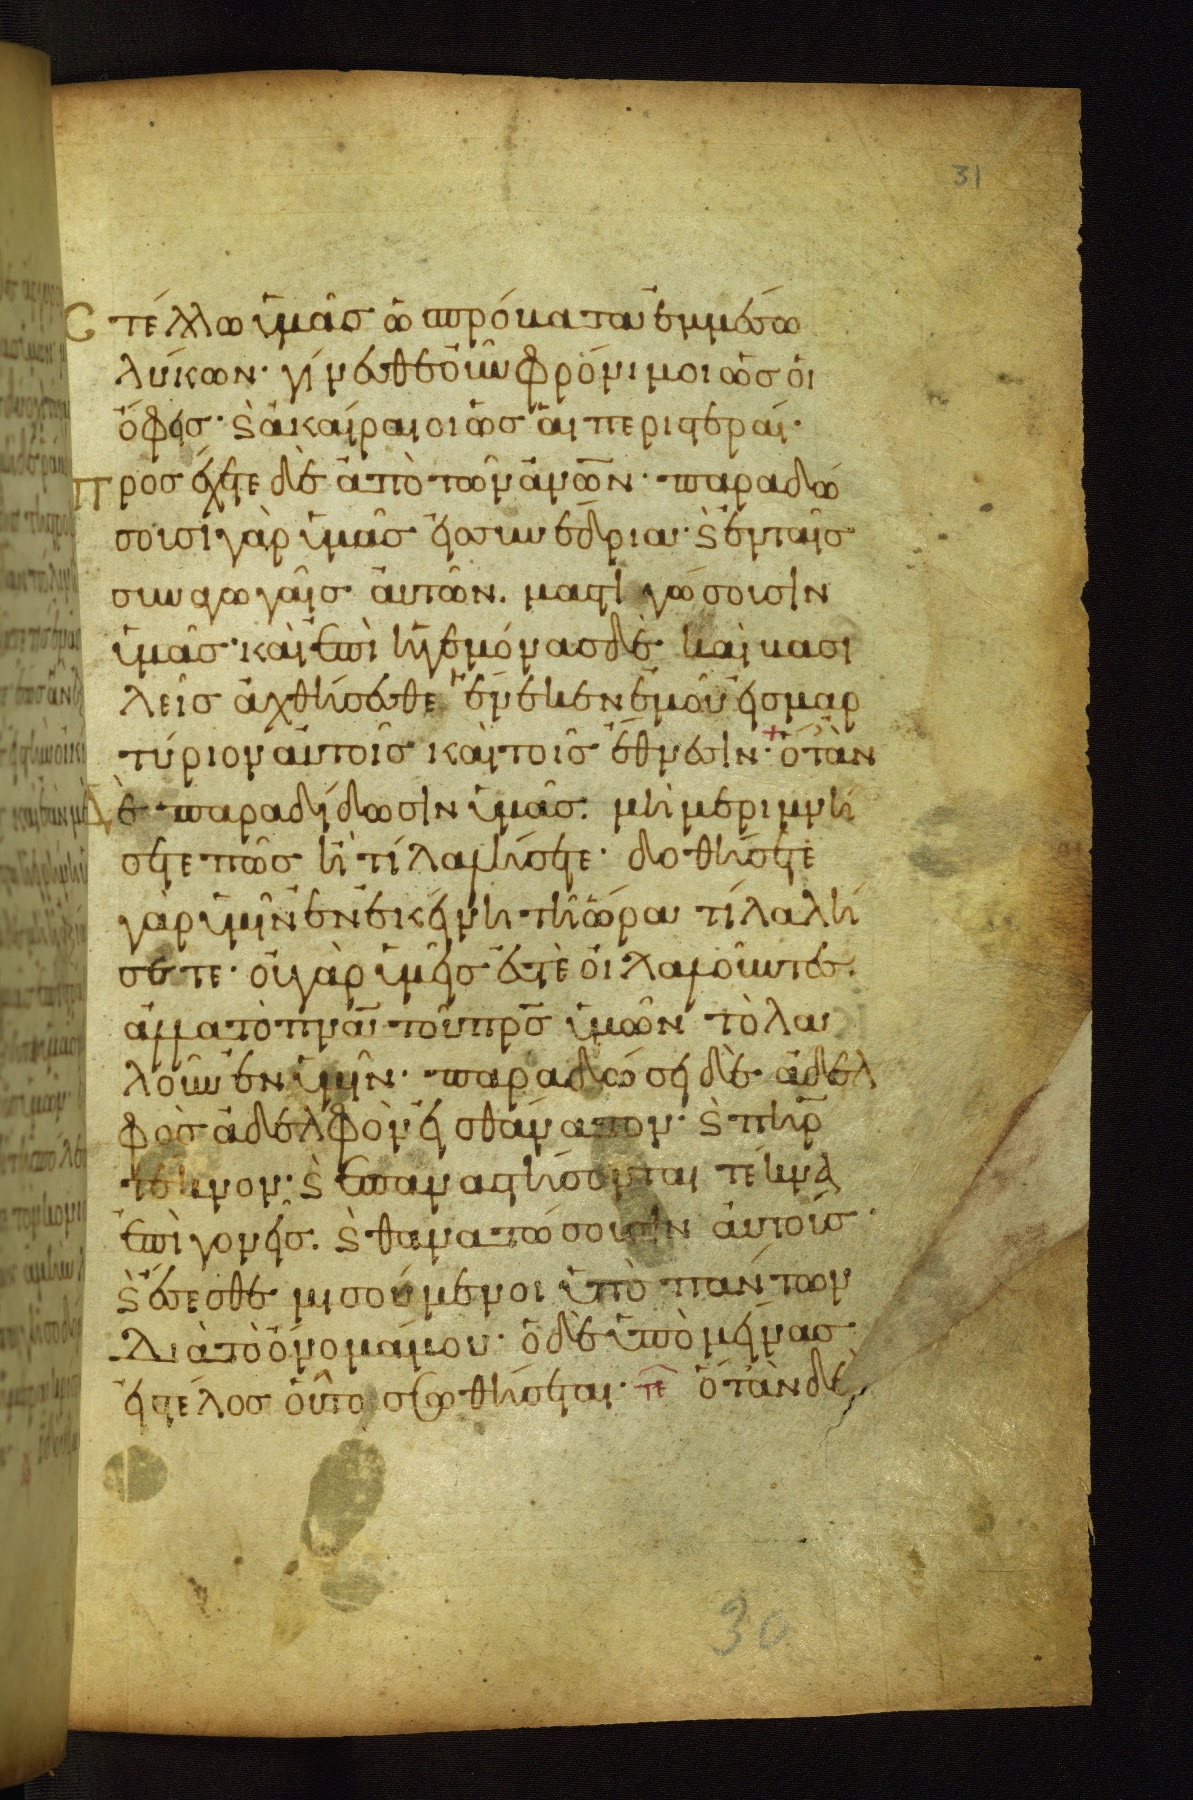 31
Cτέλλω ὑμᾶς ὡ πρόβατα ἐμμέσω
λύκων· γίνεσθε οὖν φρόνιμοι ὡς οἱ
ὄφεις· ϛ ἀκαίραιοι ὡς αἱ περιστεραί·
Προσέχετε δὲ ἀπὸ τῶν ἀν̅ῶν· παραδώ
σουσι γὰρ ὑμᾶς εἰς συνέδρια· ϛ ἐν ταῖς
συναγωγαῖς αὐτῶν. μαστιγώσουσιν
ὑμᾶς· καὶ ἐπὶ ἡγεμόνας δὲ καὶ βασι
λεῖς ἀχθήσεσθε ἕνεκεν ἐμοῦ εἰς μαρ
τύριον αὐτοῖς καὶ τοῖς ἔθνεσιν· + ὅτὰν
Δὲ παραδίδωσιν ὑμᾶς. μὴ μεριμνή
σητε πῶς ἢ τί λαλήσητε· δοθήσετε
γὰρ ὑμῖν ἐν ἐκείνη τῆ ὥρα τί λαλή
σετε· οὐ γὰρ ὑμεῖς ἐστὲ οἱ λαλοῦντες.
ἀλλα τὸ πν̅α τοῦ πρ̅ς ὑμῶν τὸ λα
λοῦν ἐν ὑμῖν· παραδώσει δὲ ἀδελ
φὸς ἀδελφὸν εἰς θάνατον· ϛ πηρ̅
τέκνον· ϛ ἐπαναστήσονται τέκνα
ἐπὶ γονεῖς. ϛ θανατώσουσιν αὐτούς·
ϛ ἔσεσθε μισούμενοι ὑπὸ πάντων
διὰ τὸ ὄνομά μου· ὁ δὲ ὑπομείνας
εἰς τέλος οὗτο σωθήσεται· τε ὅτὰν δὲ
30